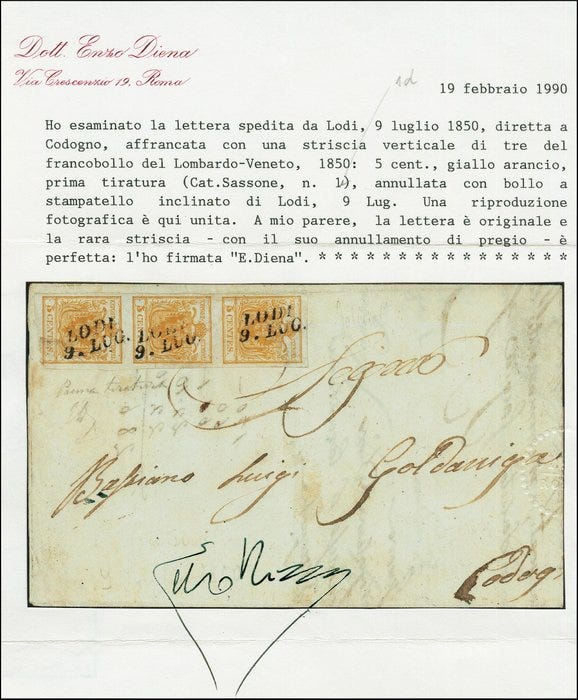 Dott. Enzo Diena
Via Crescenzio 19, Roma
1d
19 febbraio 1990
Ho esaminato la lettera spedita da Lodi, 9 luglio 1850, diretta a
Codogno, affrancata con una striscia verticale di tre del
francobollo del Lombardo-Veneto, 1850: 5 cent., giallo arancio,
prima tiratura (Cat.Sassone, n. 1), annullata con bollo a
stampatello inclinato di Lodi, 9 Lug. Una riproduzione
fotografica è qui unita. A mio parere, la lettera è originale e
la rara striscia - con il suo annullamento di pregio - è
perfetta: l'ho firmata "E.Diena". * * * * * * * * * * * * * * * * *
5 CENTES. 5 CENTES. 5 CENTES.
LODI LODI LODI
9. LUG. 9. LUG. 9. LUG.
Prima tiratura
Bassiano Luigi Goldaniga
Codog